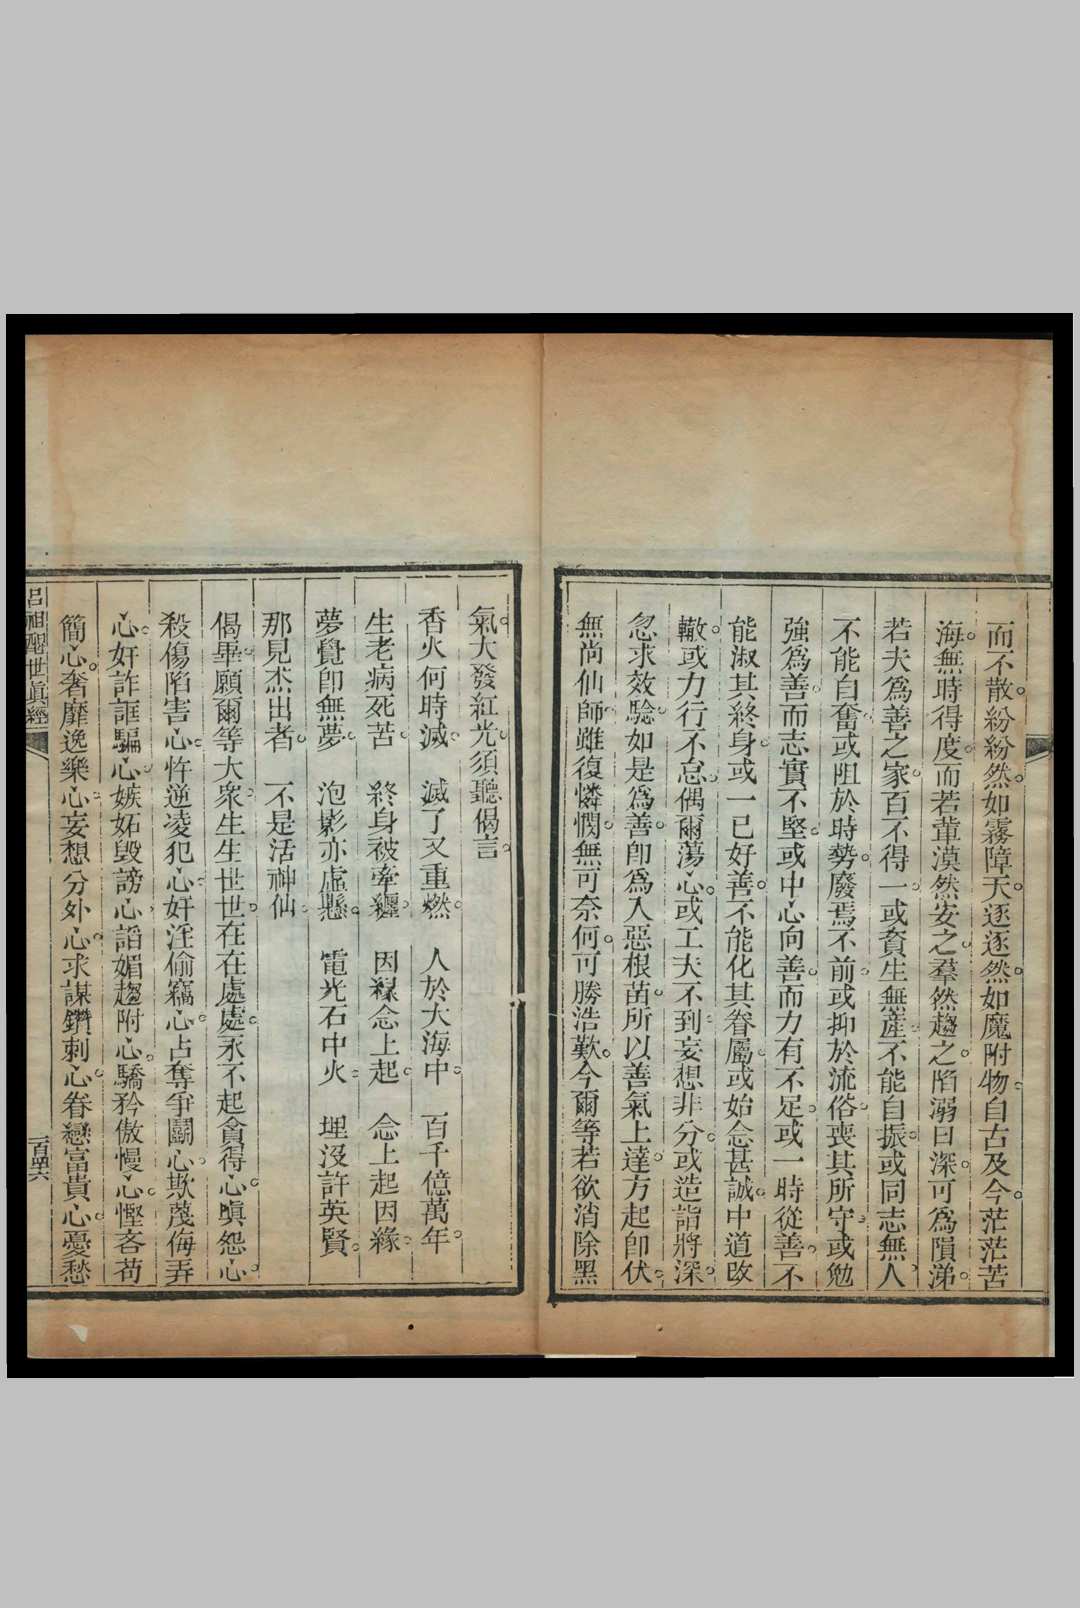 而不散。紛紛然。如霧障天。逐逐然。如魔附物。自古及今。茫茫苦
海。無時得度。而若輩漠然安之。羣然趨之。陷溺日深。可爲隕涕。
若夫爲善之家。百不得一。或貧生無產。不能自振。或同志無人。
不能自奮。或阻於時勢。廢焉不前。或抑於流俗。喪其所守。或勉
強爲善。而志實不堅。或中心向善。而力有不足。或一時從善。不
能淑其終身。或一已好善。不能化其眷屬。或始念甚誠。中道改
轍。或力行不怠。偶爾蕩心。或工夫不到。妄想非分。或造詣將深。
忽求效騐。如是爲善。卽爲入惡根苗。所以善氣上達。方起卽伏。
無尚仙師。雖復憐憫。無可奈何。可勝浩歎。今爾等若欲消除黑
氣。大發紅光。須聽偈言。
香火何時滅。 滅了又重燃。 人於大海中。 百千億萬年。
生老病死苦。 終身被牽纒。 因緣念上起。 念上起因緣。
夢覺卽無夢。 泡影亦虛懸。 電光石中火。 埋沒許英賢。
那見杰出者。 不是活神仙。
偈畢。願爾等大衆。生生世世。在在處處。永不起貪得心。嗔怨心。
殺傷陷害心。忤逆凌犯心。奸淫偷竊心。占奪爭鬭心。欺蔑侮弄
心。奸詐誆騙心。嫉妬毀謗心。諂媚趨附心。驕矜傲慢心。慳吝苟
簡心。奢靡逸樂心。妄想分外心。求謀鑽刺心。眷戀富貴心。憂愁
呂祖醒世眞經
一百四六